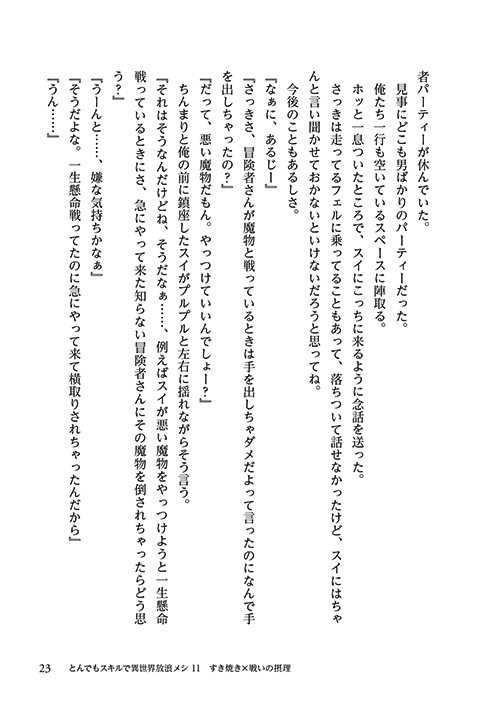 者パーティーが休んでいた。
見事にどこも男ばかりのパーティーだった。
俺たち一行も空いているスペースに陣取る。
ホッと一息ついたところで、スイにこっちに来るように念話を送った。
さっきは走ってるフェルに乗ってることもあって、落ちついて話せなかったけど、スイにはちゃ
んと言い聞かせておかないといけないだろうと思ってね。
今後のこともあるしさ。
『なぁに、あるじー』
『さっきさ、冒険者さんが魔物と戦っているときは手を出しちゃダメだよって言ったのになんで手
を出しちゃったの？』
『だって、悪い魔物だもん。やっつけていいんでしょー？』
ちんまりと俺の前に鎮座したスイがプルプルと左右に揺れながらそう言う。
『それはそうなんだけどね、そうだなぁ……、例えばスイが悪い魔物をやっつけようと一生懸命
戦っているときにさ、急にやって来た知らない冒険者さんにその魔物を倒されちゃったらどう思
う？』
『うーんと……、嫌な気持ちかなぁ』
『そうだよな。一生懸命戦ってたのに急にやって来て横取りされちゃったんだから』
『うん……』
23 とんでもスキルで異世界放浪メシ 11 すき焼き×戦いの摂理